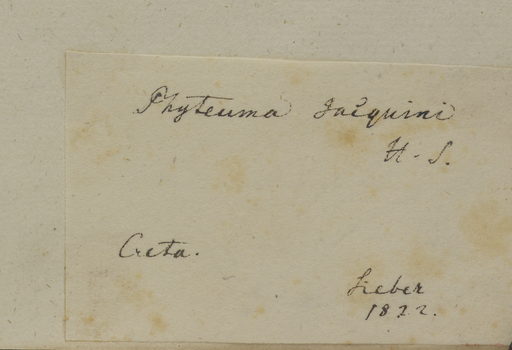 Phyteuma Jacquini
H. S.
Creta.
Sieber
1822.